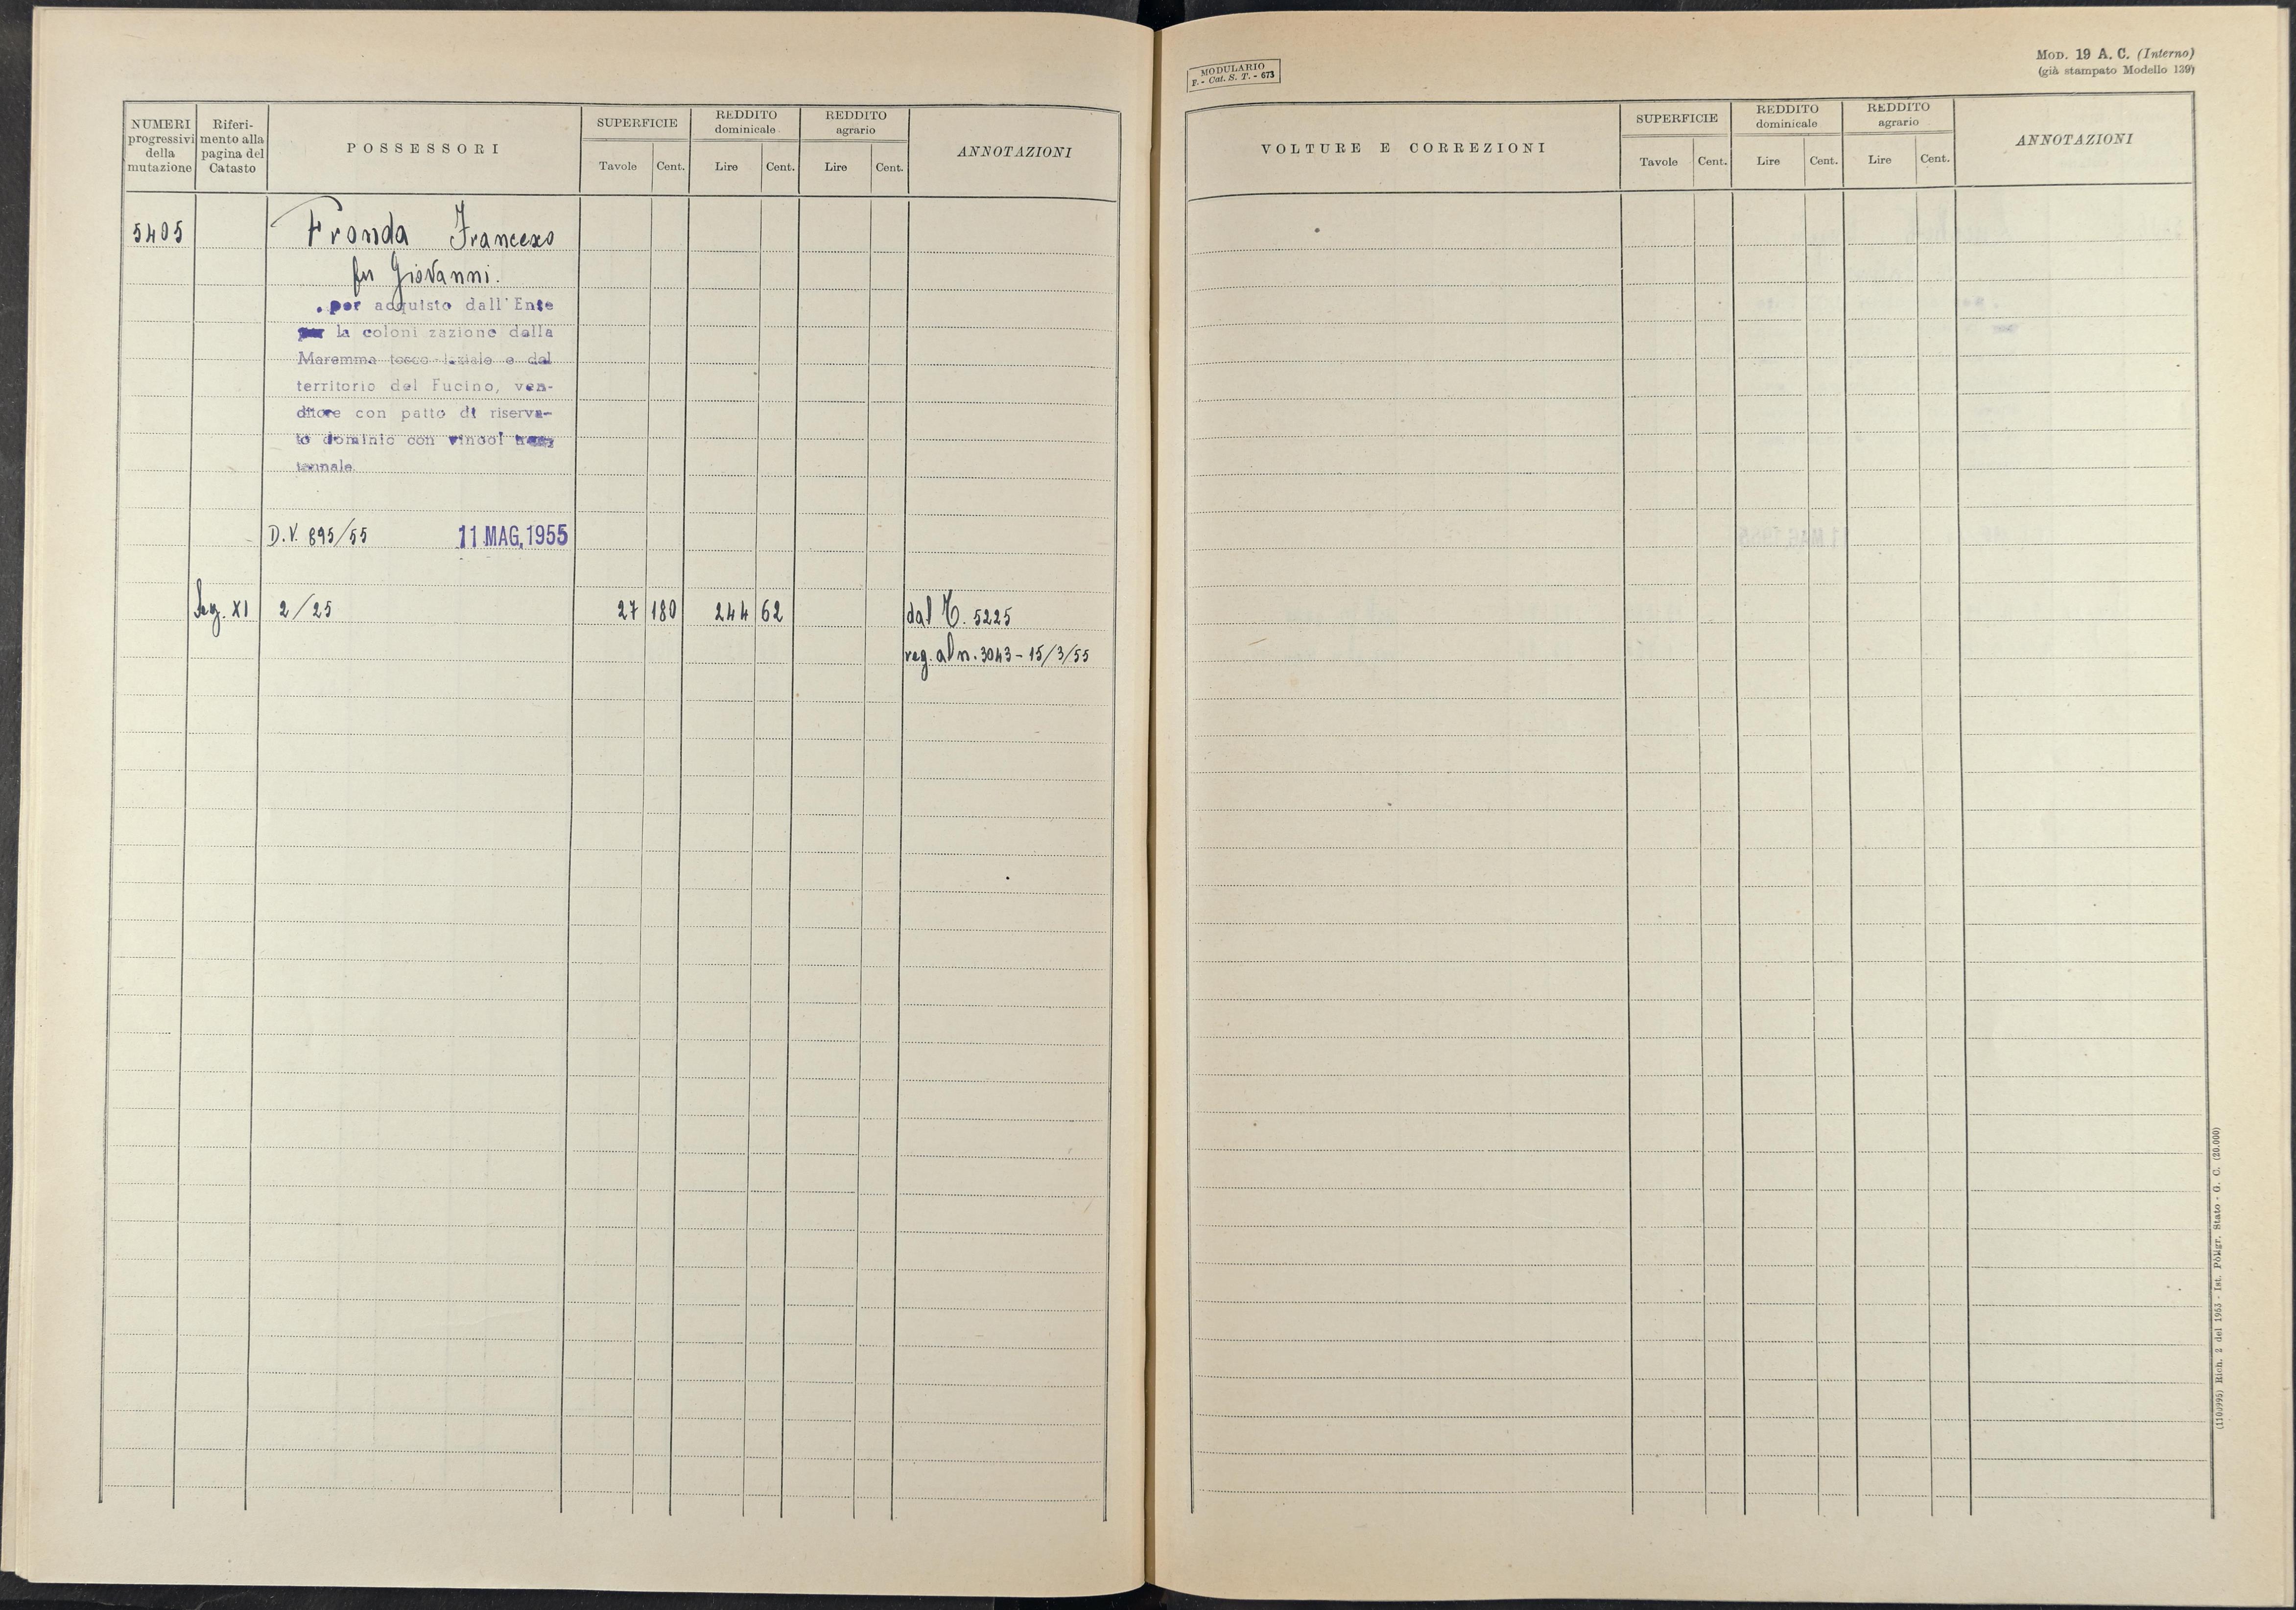 NUMERI progressivi della mutazione
Riferi- mento alla pagina del Catasto
POSSESSORI
SUPERFICIE
Tavole Cent.
REDDITO dominicale
Lire Cent.
REDDITO agrario
Lire Cent.
ANNOTAZIONI
5405 Fronda Francesco
fu Giovanni.
per acquisto dall'Ente
la coloni zazione della
Maremma tosco-laziale e del
territorio del Fucino, ven-
ditore con patto di riserva-
to dominio con vincol
tennale.
D.V. 895/55 11 MAG. 1955
Seg. XI 2/25 27 180 244 62 dal T. 5225
reg. al n. 3043 - 15/3/55
MODULARIO
F. - Cat. S. T. - 673
MOD. 19 A. C. (Interno)
(già stampato Modello 139)
VOLTURE E CORREZIONI
SUPERFICIE
Tavole Cent.
REDDITO dominicale
Lire Cent.
REDDITO agrario
Lire Cent.
ANNOTAZIONI
Rich. 2 del 1953 - Ist. Poligr. Stato - G. C. (20.000)